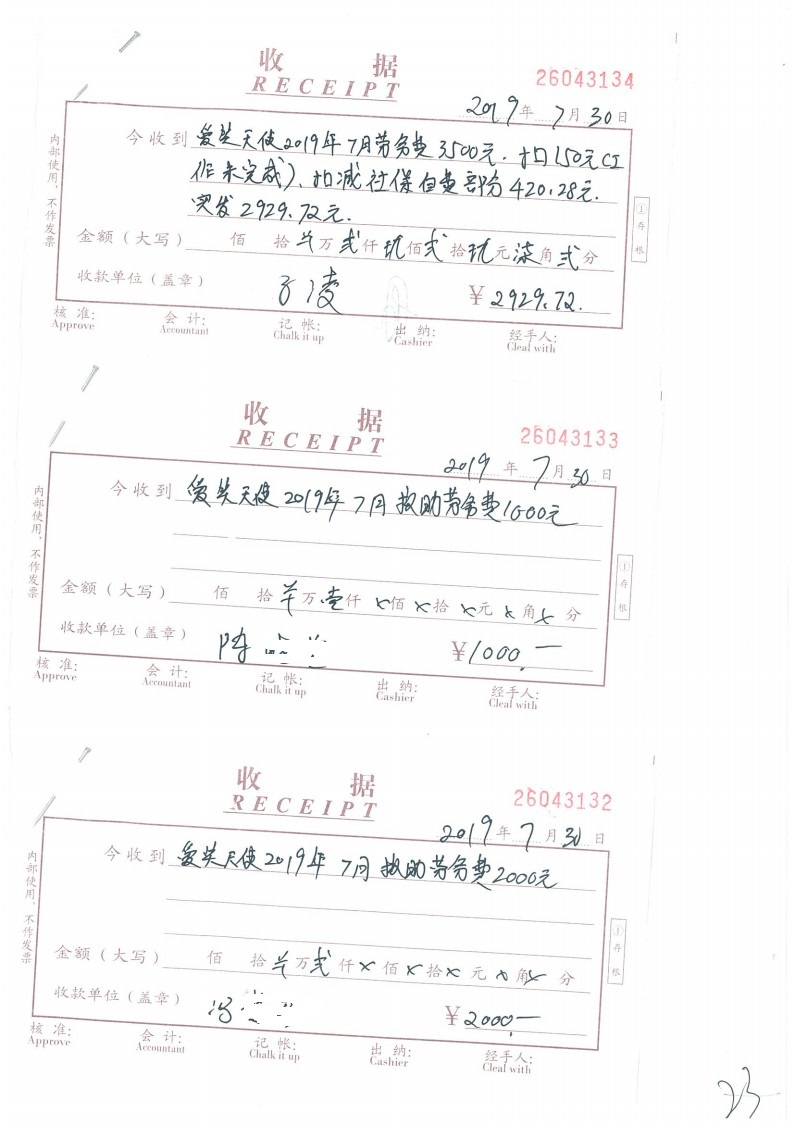 收 据
RECEIPT
26043134
2019年7月30日
内部使用，不作发票
今收到 爱笑天使2019年7月劳务费3500元，扣150元(工
作未完成)、扣减社保自费部分420.28元.
实发2929.72元.
①存根
金额(大写) 佰 拾 万 贰仟玖佰贰拾玖元柒角贰分
收款单位(盖章) ¥2929.72.
核 准: 会 计: 记 帐: 出 纳: 经手人:
Approve Accountant Chalk it up Cashier Cleal with
收 据
RECEIPT
26043133
2019年7月30日
内部使用，不作发票
今收到 爱笑天使2019年7月救助劳务费1000元
①存根
金额(大写) 佰 拾 万壹仟×佰×拾×元×角×分
收款单位(盖章) 陈 ¥1000.一
核 准: 会 计: 记 帐: 出 纳: 经手人:
Approve Accountant Chalk it up Cashier Cleal with
收 据
RECEIPT
26043132
2019年7月30日
内部使用，不作发票
今收到 爱笑天使2019年7月救助劳务费2000元
①存根
金额(大写) 佰 拾 万贰仟×佰×拾×元×角×分
收款单位(盖章) 冯 ¥2000一
核 准: 会 计: 记 帐: 出 纳: 经手人:
Approve Accountant Chalk it up Cashier Cleal with
23